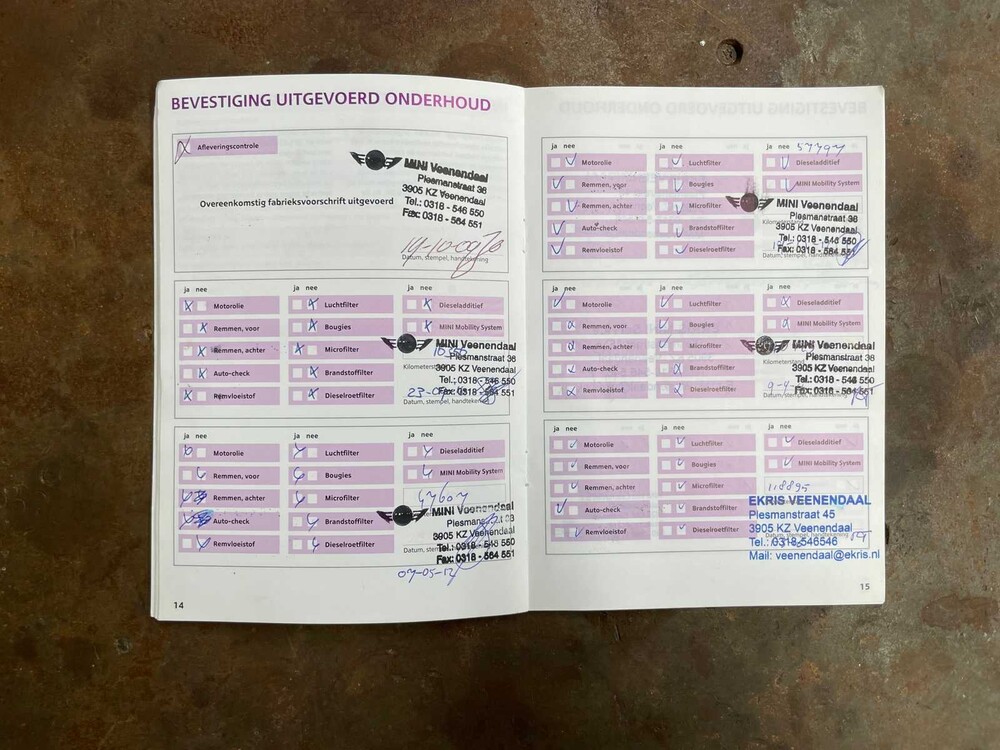 BEVESTIGING UITGEVOERD ONDERHOUD
Afleveringscontrole
Overeenkomstig fabrieksvoorschrift uitgevoerd
MINI Veenendaal
Plesmanstraat 36
3905 KZ Veenendaal
Tel.: 0318 - 546 550
Fax: 0318 - 564 551
Datum, stempel, handtekening
ja nee ja nee ja nee
Motorolie Luchtfilter Dieseladditief
Remmen, voor Bougies MINI Mobility System
Remmen, achter Microfilter
Auto-check Brandstoffilter
Remvloeistof Dieselroetfilter
MINI Veenendaal
Plesmanstraat 36
Kilometerstand
3905 KZ Veenendaal
Tel.: 0318 - 546 550
Fax: 0318 - 564 551
Datum, stempel, handtekening
ja nee ja nee ja nee
Motorolie Luchtfilter Dieseladditief
Remmen, voor Bougies MINI Mobility System
Remmen, achter Microfilter
Auto-check Brandstoffilter
Remvloeistof Dieselroetfilter
MINI Veenendaal
3905 KZ Veenendaal
Tel.: 0318 - 546 550
Fax: 0318 - 564 551
07-05-12
14
ja nee ja nee ja nee
Motorolie Luchtfilter Dieseladditief
Remmen, voor Bougies MINI Mobility System
Remmen, achter Microfilter
Auto-check Brandstoffilter
Remvloeistof Dieselroetfilter
MINI Veenendaal
Plesmanstraat 36
3905 KZ Veenendaal
Tel.: 0318 - 546 550
Fax: 0318 - 564 551
Datum, stempel, handtekening
ja nee ja nee ja nee
Motorolie Luchtfilter Dieseladditief
Remmen, voor Bougies MINI Mobility System
Remmen, achter Microfilter
Auto-check Brandstoffilter
Remvloeistof Dieselroetfilter
MINI Veenendaal
Plesmanstraat 36
3905 KZ Veenendaal
Tel.: 0318 - 546 550
Fax: 0318 - 564 551
ja nee ja nee ja nee
Motorolie Luchtfilter Dieseladditief
Remmen, voor Bougies MINI Mobility System
Remmen, achter Microfilter
Auto-check Brandstoffilter
Remvloeistof Dieselroetfilter
118895
EKRIS VEENENDAAL
Plesmanstraat 45
3905 KZ Veenendaal
Tel.: 0318-546546
Mail: veenendaal@ekris.nl
15